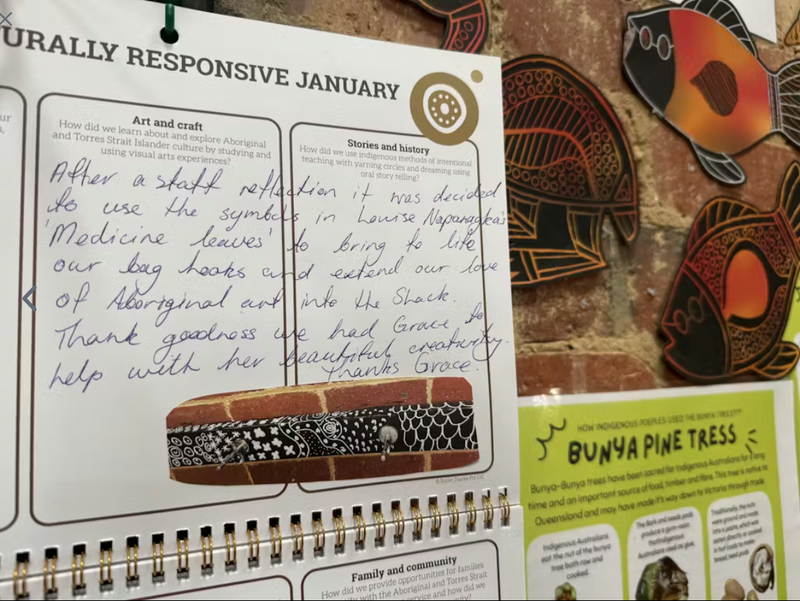 URALLY RESPONSIVE JANUARY
Art and craft
How did we learn about and explore Aboriginal
and Torres Strait Islander culture by studying and
using visual arts experiences?
Stories and history
How did we use indigenous methods of intentional
teaching with yarning circles and dreaming using
oral story telling?
After a staff reflection it was decided
to use the symbols in Louise Napangka's
'Medicine leaves' to bring to life
our bag hooks and extend our love
of Aboriginal art into the Shack.
Thank goodness we had Grace to
help with her beautiful creativity.
Thanks Grace.
Family and community
How did we provide opportunities for families
with the Aboriginal and Torres Strait
service and how did we
HOW INDIGENOUS POEPLES USED THE BUNYA TREES???
BUNYA PINE TRESS
Bunya-Bunya trees have been sacred for Indigenous Australians for a long
time and an important source of food, timber and fibre. This tree is native to
Queensland and may have made it's way down to Victoria through trade.
Indigenous Australians
eat the nut of the bunya
tree both raw and
cooked.
The Bark and seeds pods
produce a
Australians used as glue.
Traditionally, the nuts
were ground and made
into a paste, which was
eaten directly or cooked
in hot coals to make
bread,